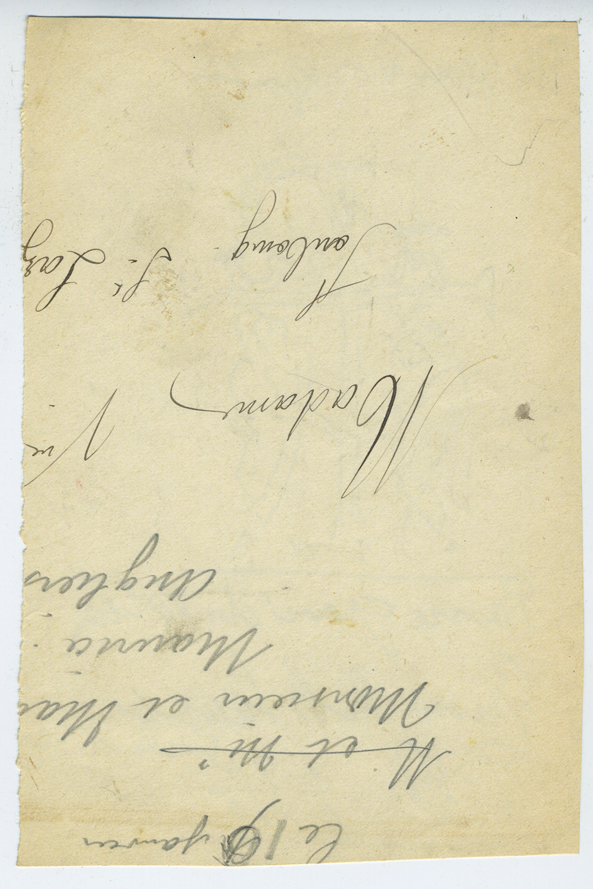 le 19 janvier
M et Mᵉ
Monsieur et Mad
Maurice
Angliers
Madame V
Faubourg St. Laz